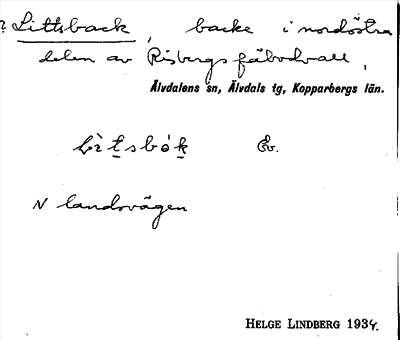 ? Littsback, backe i nordöstra
delen av Risbergs fäbodvall,
Älvdalens sn, Älvdals tg, Kopparbergs län.
lìt̲sbók̲ Ev.
N landsvägen
HELGE LINDBERG 1934.